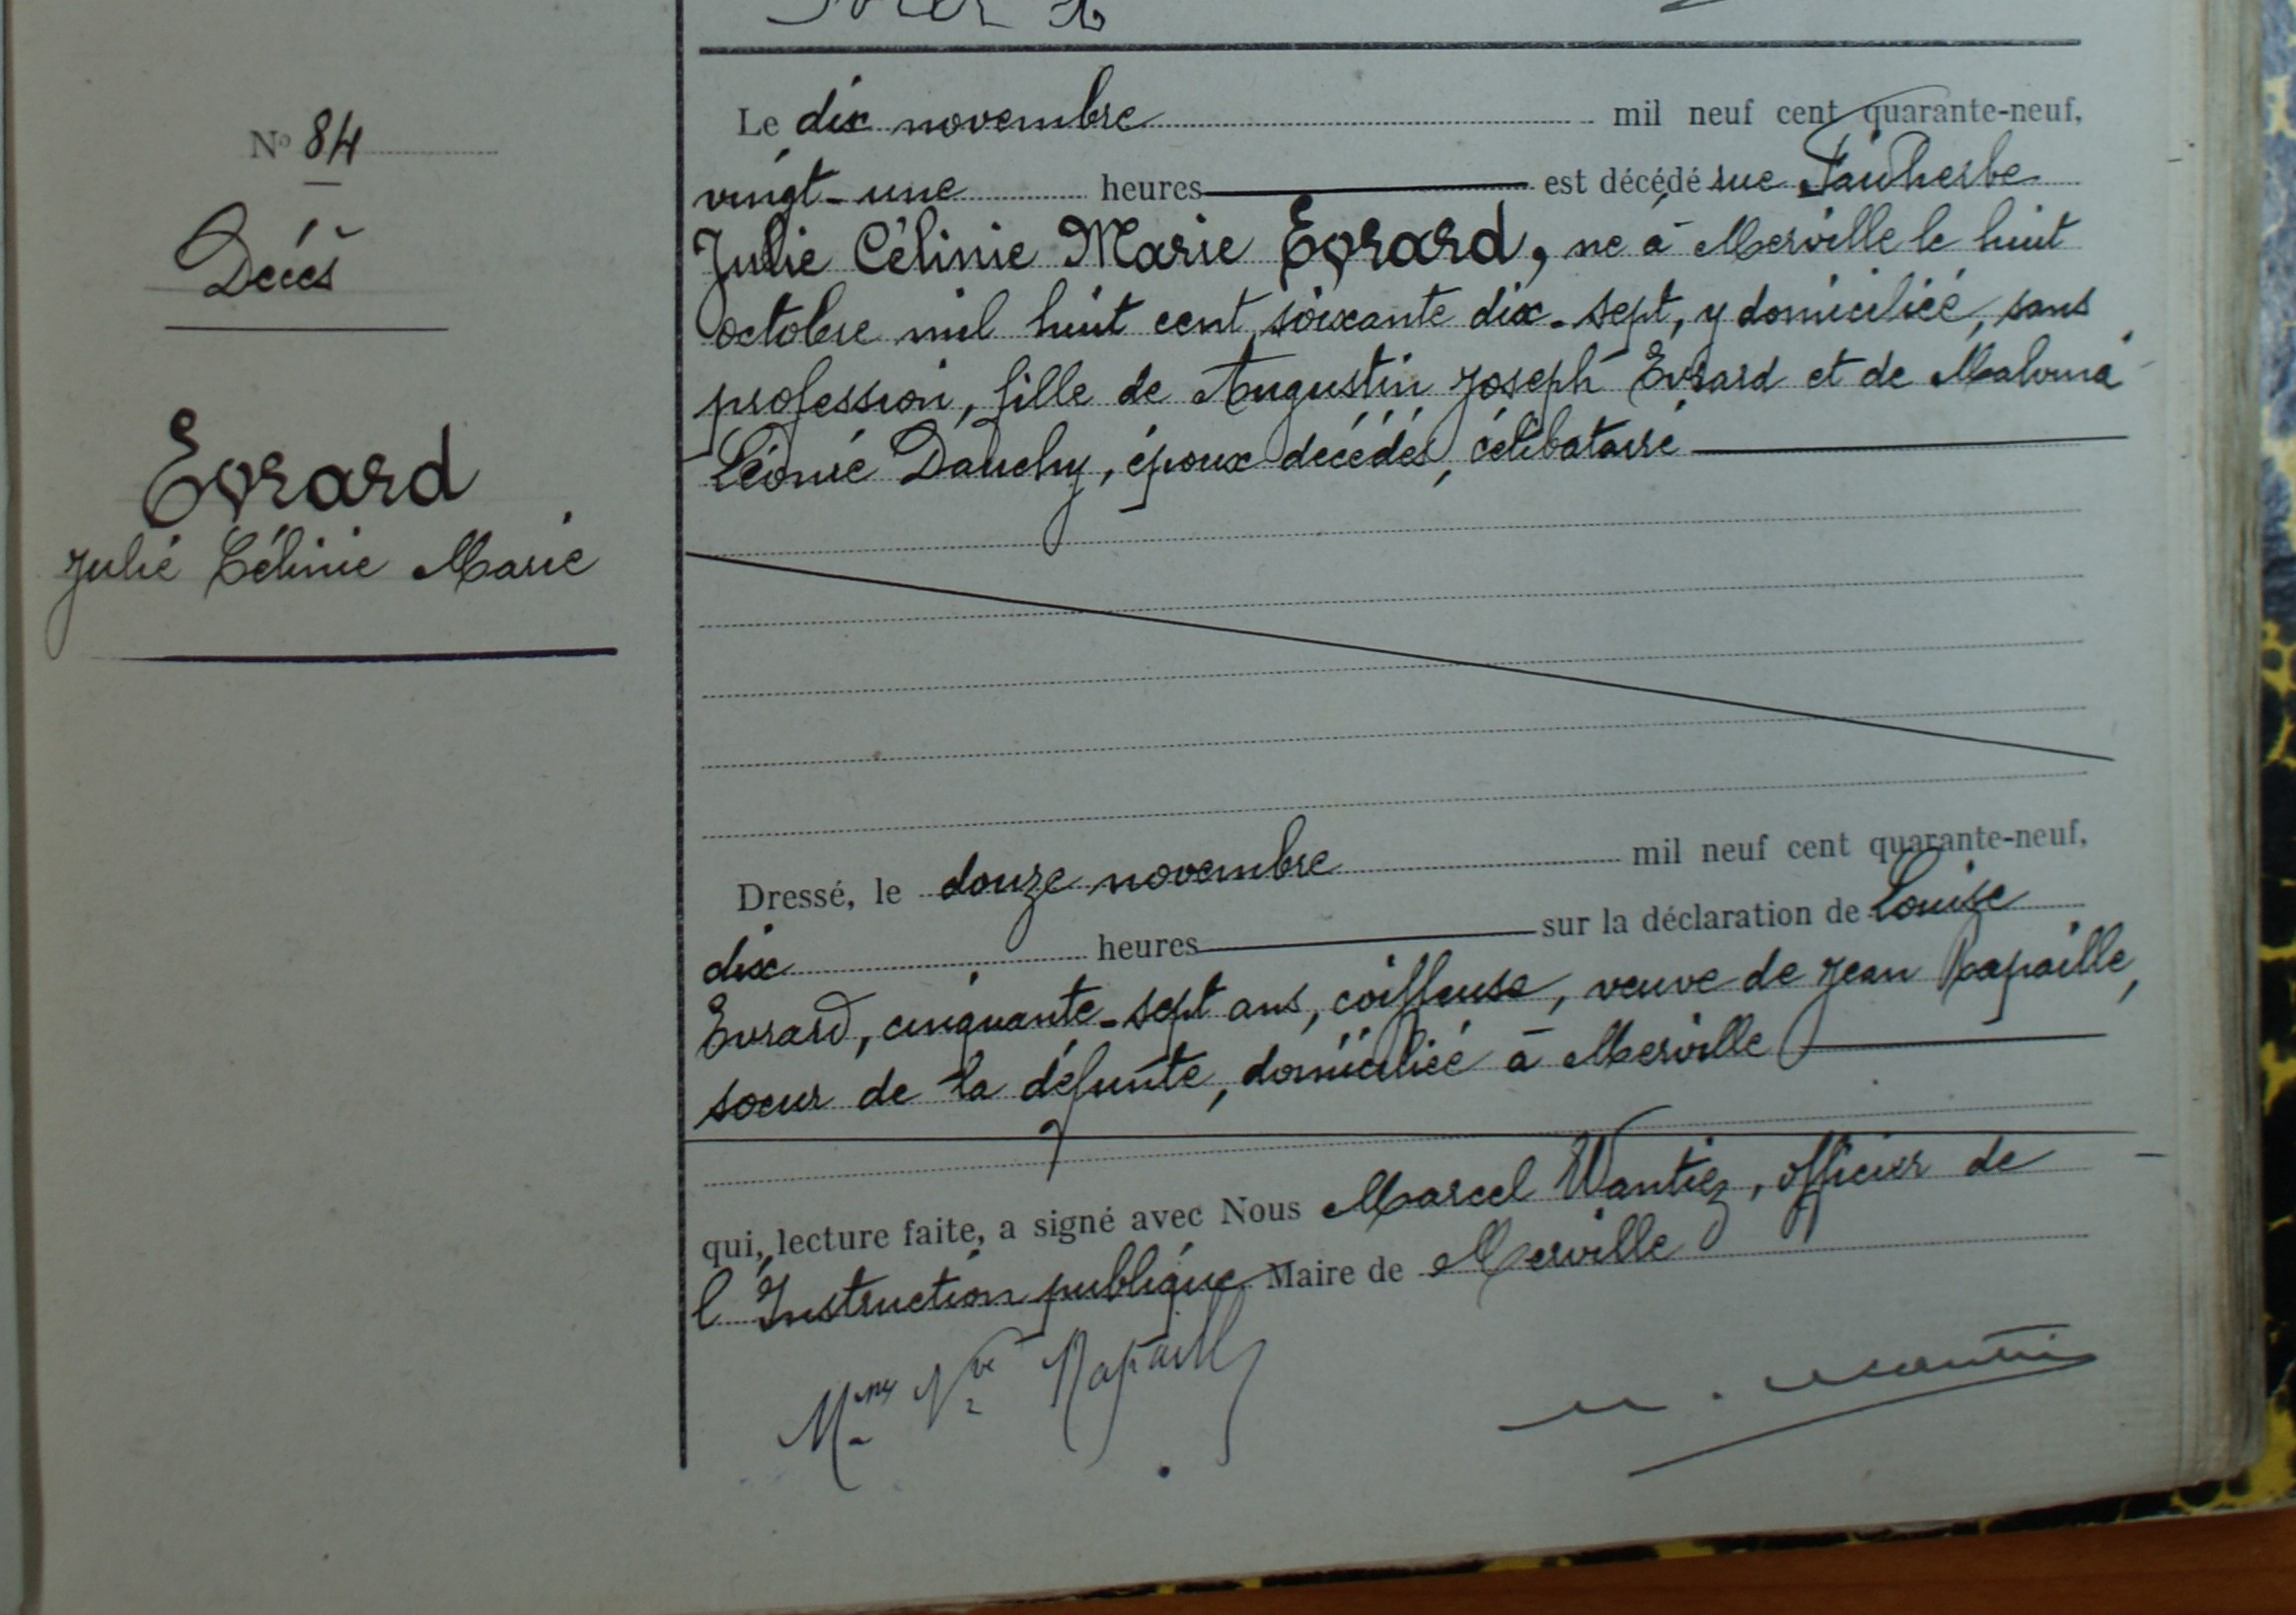 Le dix novembre mil neuf cent quarante-neuf,
vingt-une heures est décédé rue Faidherbe
Julie Célinie Marie Evrard, né à Merville le huit
octobre mil huit cent soixante dix-sept, y domiciliée, sans
profession, fille de Augustin Joseph Evrard et de Malvina
Léonie Dauchy, époux décédés, célibataire
Nº 84
Décès
Evrard
Julie Célinie Marie
Dressé, le douze novembre mil neuf cent quarante-neuf,
dix heures sur la déclaration de Louise
Evrard, cinquante-sept ans, coiffeuse, veuve de Jean Rapaille,
soeur de la défunte, domiciliée à Merville
qui, lecture faite, a signé avec Nous Marcel Wantiez, officier de
l'Instruction publique Maire de Merville
Mme Vve Rapaille